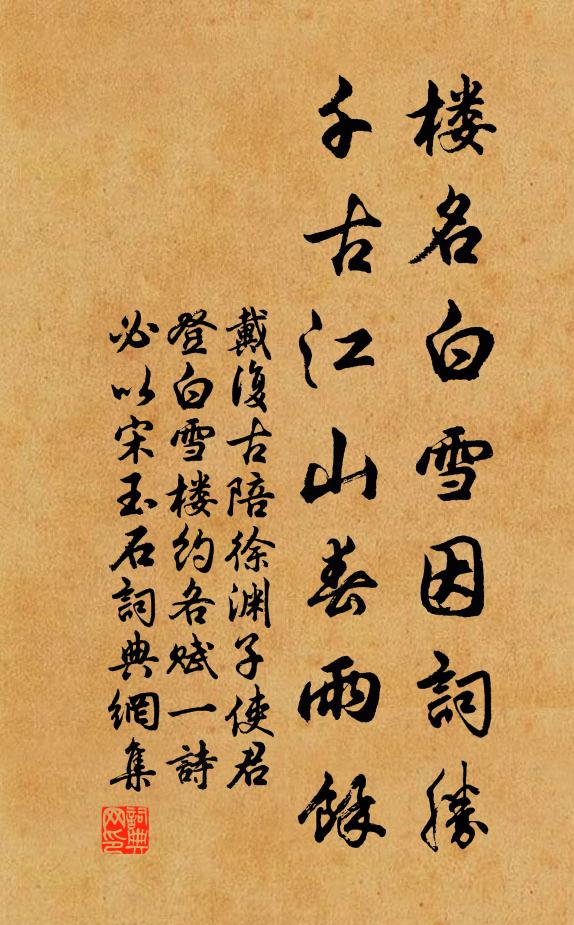 楼名白雪因詞勝
千古江山春雨餘
戴復古陪徐淵子使君
登白雪楼約各賦一詩
必以宋玉石詞典網集
詞典网印